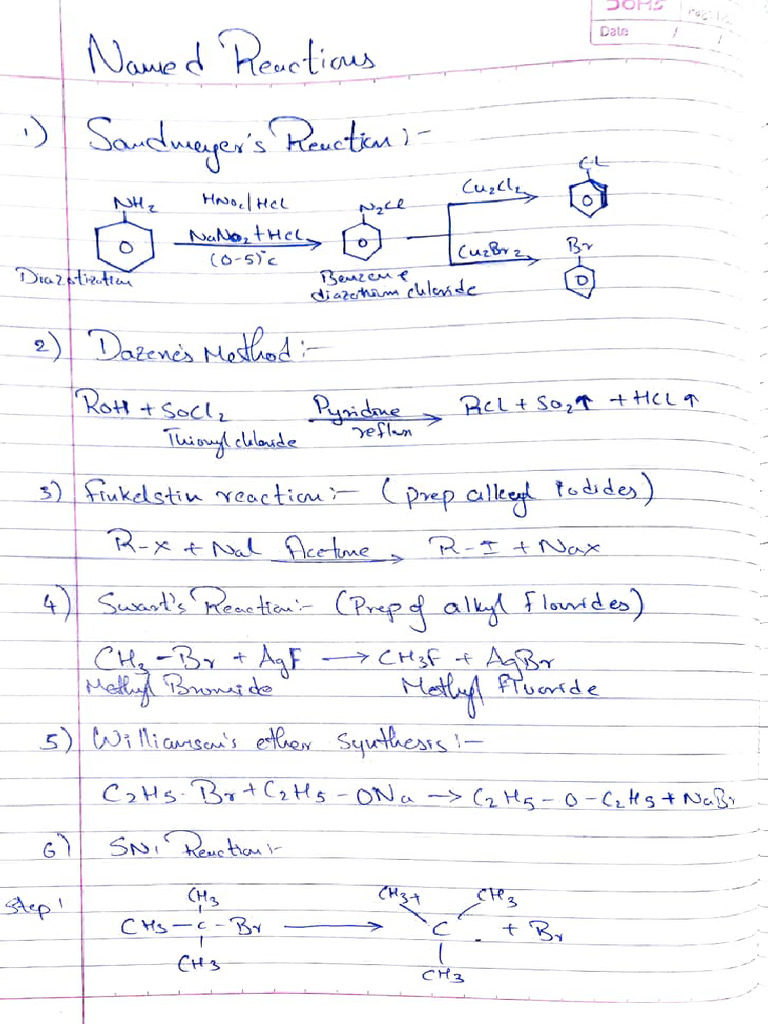 SOMS
Date / /
Named Reactions
1) Sandmeyer's Reaction :-
NH2 HNO2/HCl N2Cl Cu2Cl2 CL
NaNO2 + HCl Cu2Br2 Br
(0-5)°c
Diazotization Benzene
diazotium chloride
2) Dazene's Method :-
ROH + SOCl2 Pyridine RCL + SO2↑ + HCL↑
Thionyl chloride reflux
3) finkelstin reaction :- (prep alkyl Iodides)
R-X + NaI Acetone R-I + NaX
4) Swart's Reaction :- (Prep of alkyl flourides)
CH3-Br + AgF → CH3F + AgBr
Methyl Bromide Methyl Fluoride
5) Williamson's ether synthesis :-
C2H5-Br + C2H5-ONa → C2H5-O-C2H5 + NaBr
6) SN1 Reaction :-
Step 1 CH3 CH3+ CH3
CH3-C-Br → C + Br
CH3 CH3